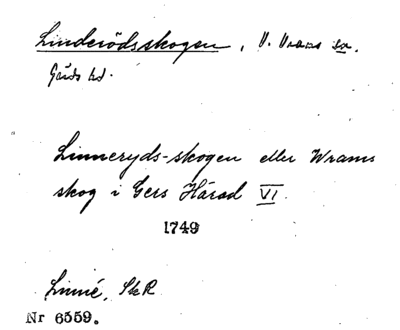 Linderödsskogen, V. Vrams sn.
Gärds hd.
Linneryds-skogen eller Wrams
skog i Gers Härad VI.
1749
Linné, SkR
Nr 6559.